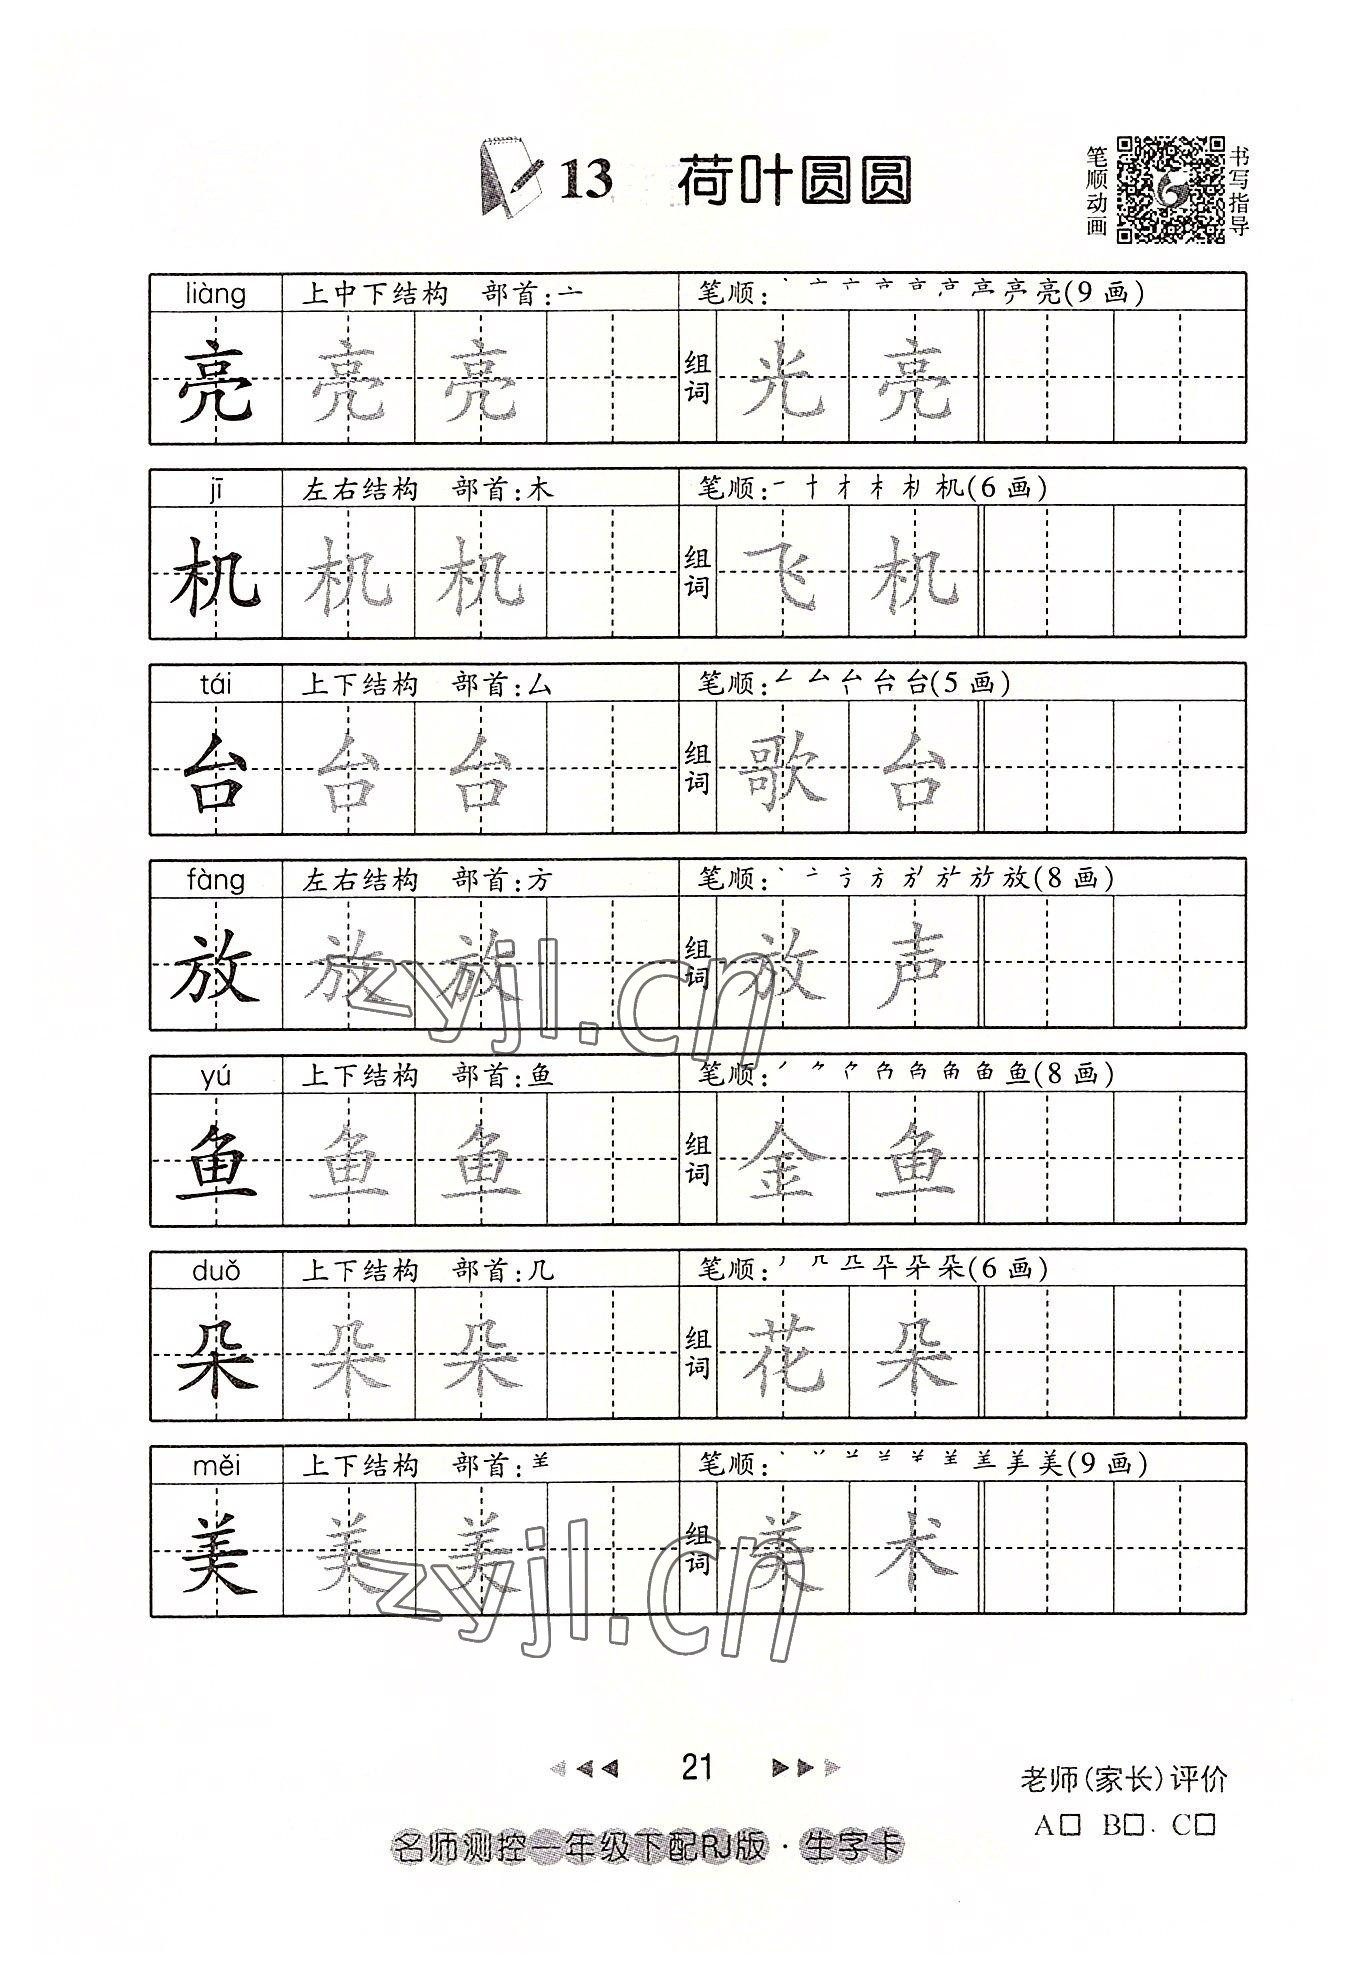 13 荷叶圆圆
笔顺动画
书写指导
liàng 上中下结构 部首:亠 笔顺:亮(9 画)
亮 亮 亮 组词 光 亮
jī 左右结构 部首:木 笔顺:一 十 才 木 机 机(6 画)
机 机 机 组词 飞 机
tái 上下结构 部首:厶 笔顺:台 台(5 画)
台 台 台 组词 歌 台
fàng 左右结构 部首:方 笔顺:放(8 画)
放 放 放 组词 放 声
yú 上下结构 部首:鱼 笔顺:鱼(8 画)
鱼 鱼 鱼 组词 金 鱼
duǒ 上下结构 部首:几 笔顺:朵(6 画)
朵 朵 朵 组词 花 朵
měi 上下结构 部首:⺷ 笔顺:美(9 画)
美 美 美 组词 美 术
zyjl.cn
zyjl.cn
21
老师(家长)评价
A□ B□. C□
名师测控一年级下配RJ版·生字卡